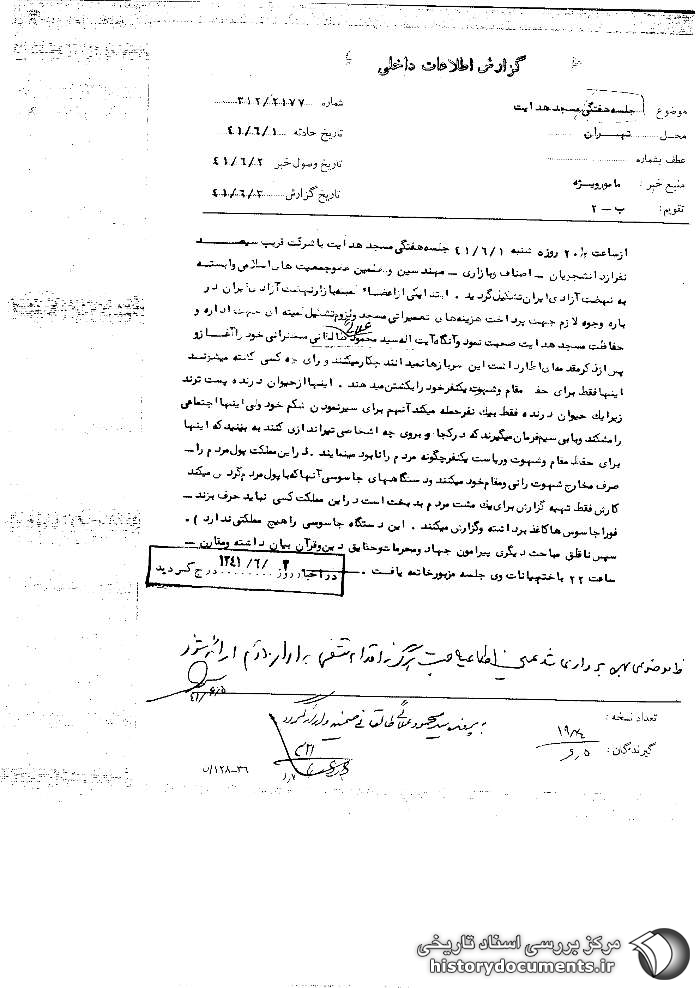 گزارش اطلاعات داخلی
موضوع : جلسه هفتگی مسجد هدایت
شماره ۳۱۲/۲۱۷۷
محل تهران
تاریخ حادثه ۴۱/۶/۱
عطف بشماره
تاریخ وصول خبر ۴۱/۶/۲
منبع خبر : مامور ویژه
تاریخ گزارش ۴۱/۶/۳
تقویم : ب – ۲
از ساعت ۲۰ روز ۵ شنبه ۴۱/۶/۱ جلسه هفتگی مسجد هدایت با شرکت قریب سیصد
نفر از دانشجویان – اصناف و بازاری – مهندسین و معلمین عضو جمعیت های اسلامی وابسته
به نهضت آزادی ایران تشکیل گردید . ابتدا یکی از اعضاء کمیته بازار نهضت آزادی ایران در
باره وجوه لازم جهت پرداخت هزینه های تعمیراتی مسجد و لزوم تشکیل کمیته ای جهت اداره و
حفاظت مسجد هدایت صحبت نمود و آنگاه آیت اله سید محمود طالقانی سخنرانی خود را آغاز و
پس از ذکر مقدمه ای اظهار داشت این سربازها نمیدانند چکار میکنند و برای چه کسی کشته میشوند
اینها فقط برای حفظ مقام و شهوت یکنفر خود را بکشتن میدهند . اینها از حیوان درنده پست ترند
زیرا یک حیوان درنده فقط بیک نفر حمله میکند آنهم برای سیر نمودن شکم خود ولی اینها اجتماعی
را میکشند و با بی سیم فرمان میگیرند که در کجا و بروی چه اشخاصی تیراندازی کنند به بینید که اینها
برای حفظ مقام و شهوت و ریاست یکنفر چگونه مردم را نابود مینمایند . در این مملکت پول مردم را –
صرف مخارج شهوت رانی و مقام خود میکنند و دستگاههای جاسوسی آنها که با پول مردم گردش میکند
کارش فقط تهیه گزارش برای یک مشت مردم بدبخت است در این مملکت کسی نباید حرف بزند –
فورا جاسوس ها کاغذ برداشته و گزارش میکنند . این دستگاه جاسوسی را هیچ مملکتی ندارد .
سپس ناطق مباحث دیگری پیرامون جهاد و محرمات و حقایق دین و قرآن بیان داشته و مقارن –
ساعت ۲۲ با ختم بیانات وی جلسه مزبور خاتمه یافت .
در اخبار روز ۳ /۶/ ۱۳۴۱ درج گردید
۴۱/۶/۵
تعداد نسخه :
گیرندگان :
۳۶–۱۲۸/ن
مرکز بررسی اسناد تاریخی
historydocuments.ir